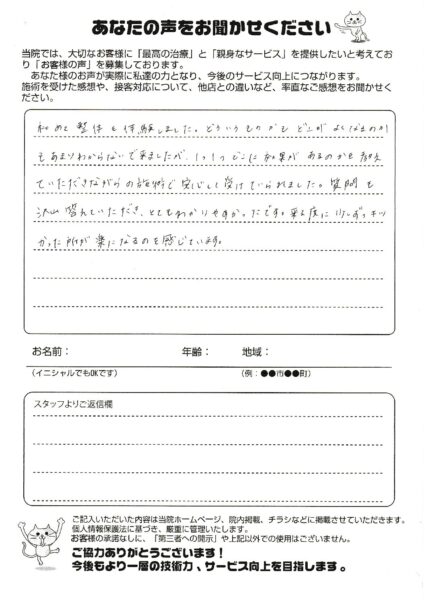 あなたの声をお聞かせください
当院では、大切なお客様に「最高の治療」と「親身なサービス」を提供したいと考えてお
り「お客様の声」を募集しております。
あなた様のお声が実際に私達の力となり、今後のサービス向上につながります。
施術を受けた感想や、接客対応について、他店との違いなど、率直なご感想をお聞かせく
ださい。
初めて整体を体験しました。どういうものかも どこが よくなるのか
もあまりわからないで来ましたが、1つ1つどこに効果が あるのかを教え
ていただきながらの施術で安心して受けていられました。質問も
沢山答えていただき、とてもわかりやすかったです。来る度に少しずつキツ
かった所が楽になるのを感じています。
お名前: 年齢: 地域:
(イニシャルでもOKです) (例:●●市●●町)
スタッフよりご返信欄
ご記入いただいた内容は当院ホームページ、院内掲載、チラシなどに掲載させていただきます。
個人情報保護法に基づき、厳重に管理いたします。
お客様の承諾なしに、「第三者への開示」や上記以外での使用はございません。
ご協力ありがとうございます!
今後もより一層の技術力、サービス向上を目指します。